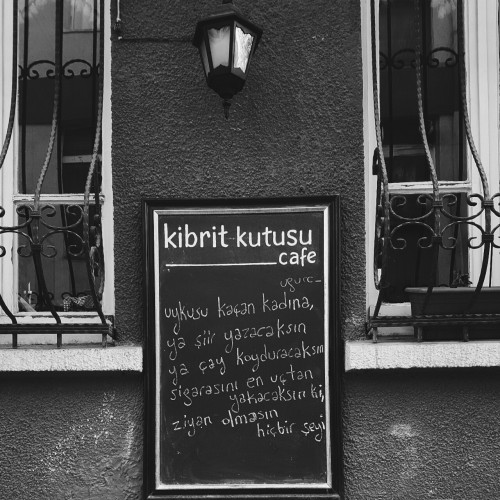 kibrit kutusu
cafe
uykusu kaçan kadına,
ya şiir yazacaksın
ya çay koyduracaksın
sigarasını en uçtan
yakacaksın ki,
ziyan olmasın
hiçbir şeyi